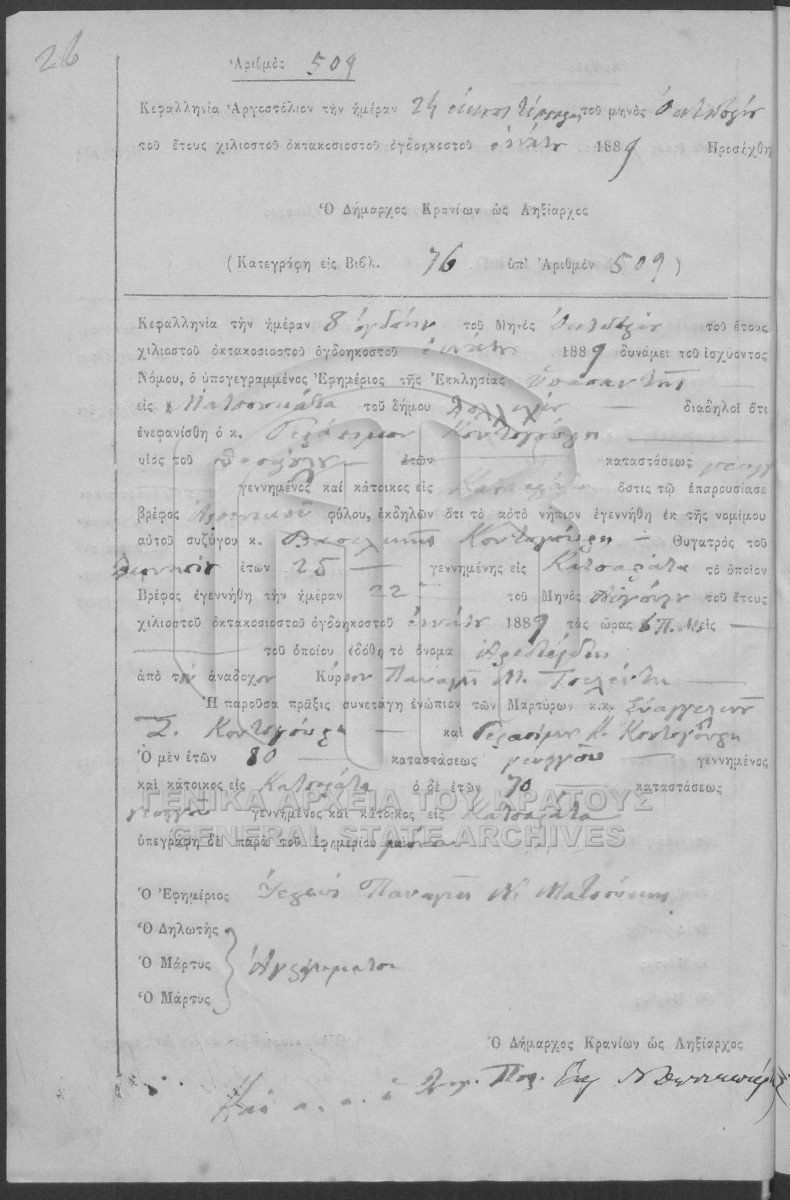 26
Ἀριθμὸς 509
Κεφαλληνία Ἀργοστόλιον τὴν ἡμέραν 24 εἰκοστ τέσσαρες τοῦ μηνὸς Ὀκτωβρίου
τοῦ ἔτους χιλιοστοῦ ὀκτακοσιοστοῦ ὀγδοηκοστοῦ ἐννάτου 1889 Προσήχθη
Ὁ Δήμαρχος Κρανίων ὡς Ληξίαρχος
(Κατεγράφη εἰς Βιβλ. 76 ὑπ' Ἀριθμὸν 509)
Κεφαλληνία τὴν ἡμέραν 8 ὀγδόην τοῦ Μηνὸς Ὀκτωβρίου τοῦ ἔτους
χιλιοστοῦ ὀκτακοσιοστοῦ ὀγδοηκοστοῦ ἐννάτου 1889 δυνάμει τοῦ ἰσχύοντος
Νόμου, ὁ ὑπογεγραμμένος Ἐφημέριος τῆς Ἐκκλησίας Ὑπαπαντῆς
εἰς Ματσουκάτα τοῦ δήμου διαδηλοῖ ὅτι
ἐνεφανίσθη ὁ κ. Γεράσιμον Κοντογούρη
υἱὸς τοῦ ἐτῶν καταστάσεως γεωργ
γεννημένος καὶ κάτοικος εἰς Κατσαράτα ὅστις τῷ ἐπαρουσίασε
βρέφος Ἀρσενικοῦ φύλου, ἐκδηλῶν ὅτι τὸ αὐτὸ νήπιον ἐγεννήθη ἐκ τῆς νομίμου
αὐτοῦ συζύγου κ. Βασιλικῆς Κοντογούρη Θυγατρὸς τοῦ
Διονυσίου ἐτῶν 25 γεννημένης εἰς Κατσαράτα τὸ ὁποῖον
Βρέφος ἐγεννήθη τὴν ἡμέραν 22 τοῦ Μηνὸς Αὐγούστου τοῦ ἔτους
χιλιοστοῦ ὀκτακοσιοστοῦ ὀγδοηκοστοῦ ἐννάτου 1889 τὰς ὥρας 6 Π.Μ. εἰς
τοῦ ὁποίου ἐδόθη τὸ ὄνομα Ἀριστείδης
ἀπὸ τὴν ἀνάδοχον Κύριον Παναγῆ Μ. Τσελέντη
Ἡ παροῦσα πρᾶξις συνετάγη ἐνώπιον τῶν Μαρτύρων κ.κ. Εὐαγγελινοῦ
Σ. Κοντογούρη καὶ Γερασίμου Κ. Κοντογούρη
Ὁ μὲν ἐτῶν 80 καταστάσεως γεωργοῦ γεννημένος
καὶ κάτοικος εἰς Κατσαράτα ὁ δὲ ἐτῶν 70 καταστάσεως
γεωργοῦ γεννημένος καὶ κάτοικος εἰς Κατσαράτα
ὑπεγράφη δὲ παρὰ τοῦ ἐφημερίου μόνον
ΓΕΝΙΚΑ ΑΡΧΕΙΑ ΤΟΥ ΚΡΑΤΟΥΣ
GENERAL STATE ARCHIVES
Ὁ Ἐφημέριος Ἱερεὺς Παναγῆς Ν. Ματσούκης
Ὁ Δηλωτὴς
Ὁ Μάρτυς Ἀγράμματοι
Ὁ Μάρτυς
Ὁ Δήμαρχος Κρανίων ὡς Ληξίαρχος